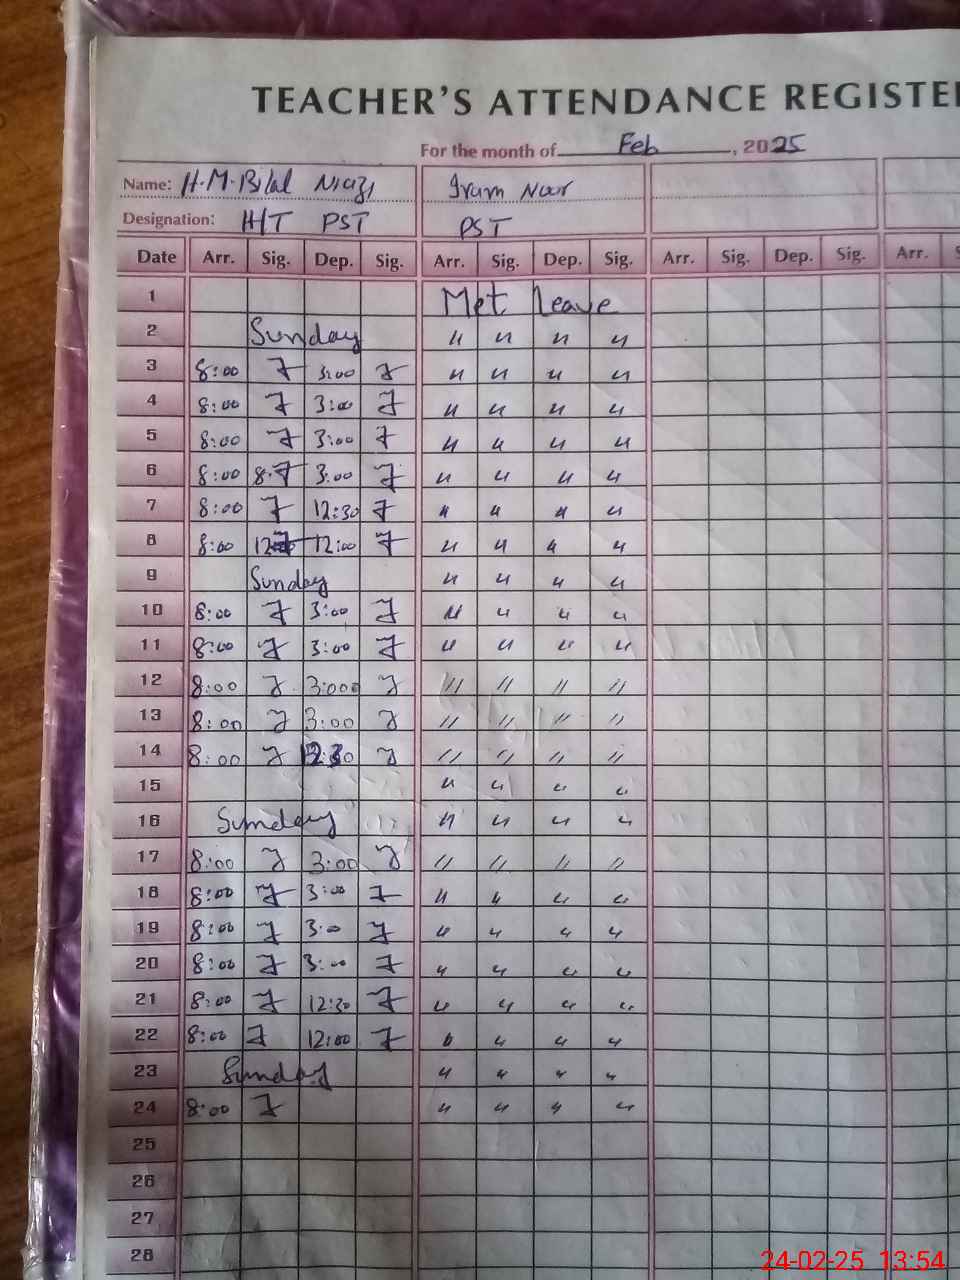 TEACHER'S ATTENDANCE REGISTE
For the month of Feb, 2025
Name: H.M.Bilal Niazi Iram Noor
Designation: H/T PST PST
Date Arr. Sig. Dep. Sig. Arr. Sig. Dep. Sig. Arr. Sig. Dep. Sig. Arr. S
1 Met leave
2 Sunday " " " "
3 8:00 3:00 " " " "
4 8:00 3:00 " " " "
5 8:00 3:00 " " " "
6 8:00 3:00 " " " "
7 8:00 12:30 " " " "
8 8:00 12:00 " " " "
9 Sunday " " " "
10 8:00 3:00 " " " "
11 8:00 3:00 " " " "
12 8:00 3:000 " " " "
13 8:00 3:00 " " " "
14 8:00 12:30 " " " "
15 " " " "
16 Sunday " " " "
17 8:00 3:00 " " " "
18 8:00 3:00 " " " "
19 8:00 3:0 " " " "
20 8:00 3:00 " " " "
21 8:00 12:30 " " " "
22 8:00 12:00 " " " "
23 Sunday " " " "
24 8:00 " " " "
25
26
27
28
24-02-25 13:54